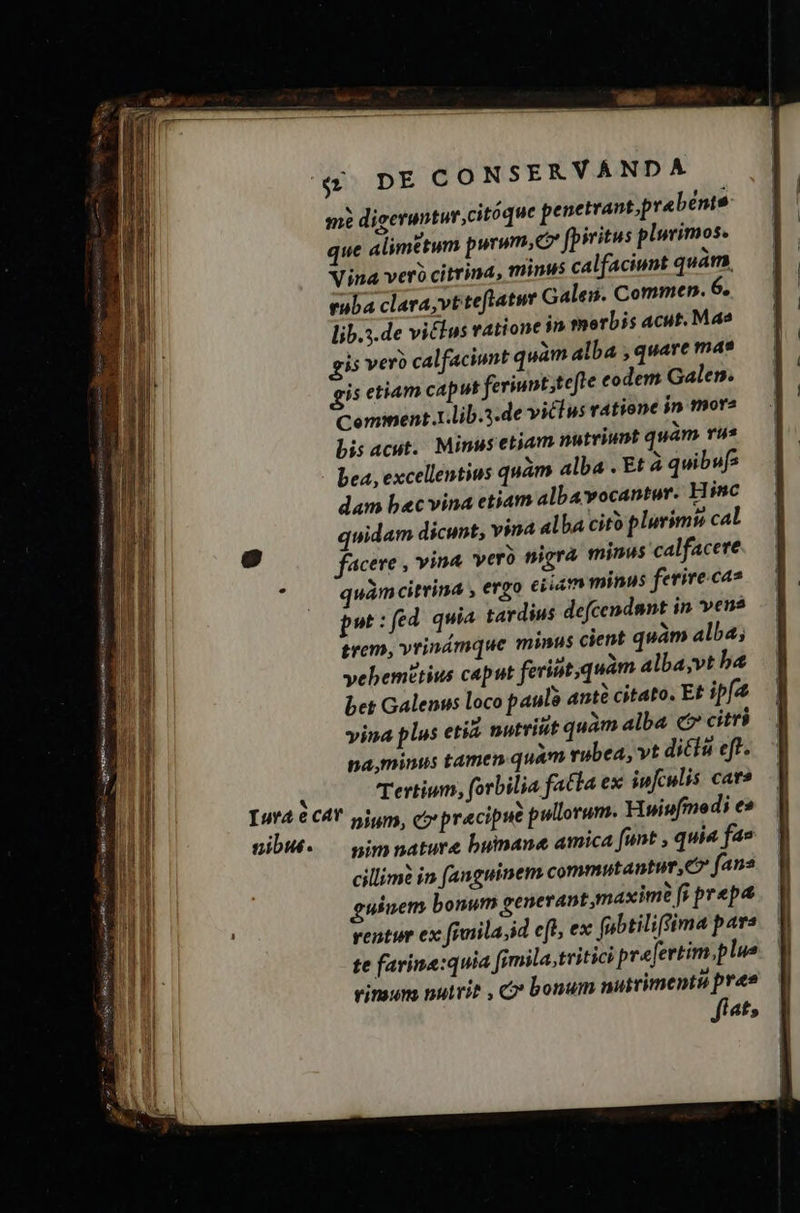 52 DE CONSERVANDA
mè digeruntur, citóque penetrant, præbente
que alimētum purum, & ſpiritus plurimos.
Vina verò citrina, minus calfaciunt quàm
ruba clara, vt teſtatur Galen. Commen. 6.
lib.3. de victus ratione in morbis acut. Ma
gis verò calfaciunt quàm alba, quare ma
gis etiam caput feriunt, teſte eodem Galen.
Comment.1. lib.3. de victus ratione in mor
bis acut. Minus etiam nutriunt quàm ru
bea, excellentius quàm alba. Et à quibuſ
dam hæc vina etiam alba vocantur. Hinc
quidam dicunt, vina alba citò plurimū cal
facere, vina verò nigra minus calfacere
quàm citrina, ergo etiam minus ferire ca
put: ſed quia tardius deſcendunt in ven
trem, vrinámque minus cient quàm alba;
vehemētius caput feriūt, quàm alba, vt ha
bet Galenus loco paulò antè citato. Et ipſa
vina plus etiā nutriūt quàm alba & citri
na, minus tamen quàm rubea, vt dictū eſt.
Tertium, ſorbilia facta ex iuſculis car
Iura è car nium, & præcipuè pullorum. Huiuſmodi e
nibus. nim naturæ humanæ amica ſunt, quia fa
cillimè in ſanguinem commutantur, & ſan
guinem bonum generant, maximè ſi præpa
rentur ex ſimila, id eſt, ex ſubtiliſsima par
te farinæ: quia ſimila, tritici præſertim, plu
rimum nutrit, & bonum nutrimentū præ
ſtat,